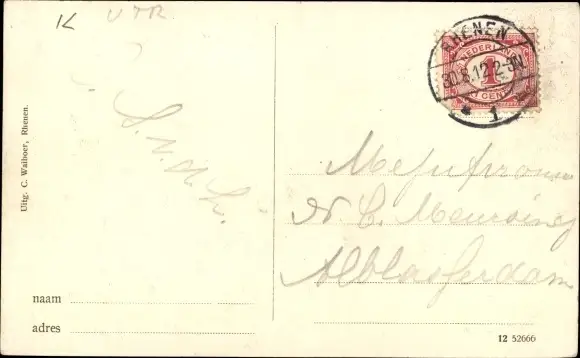 K UTR.
RHENEN
NEDERLAND
1
30.8.12 2-3N
CENT
1
Uitg. C. Walboer, Rhenen.
Mejufvrouw
Alblasserdam
naam
adres
12 52666